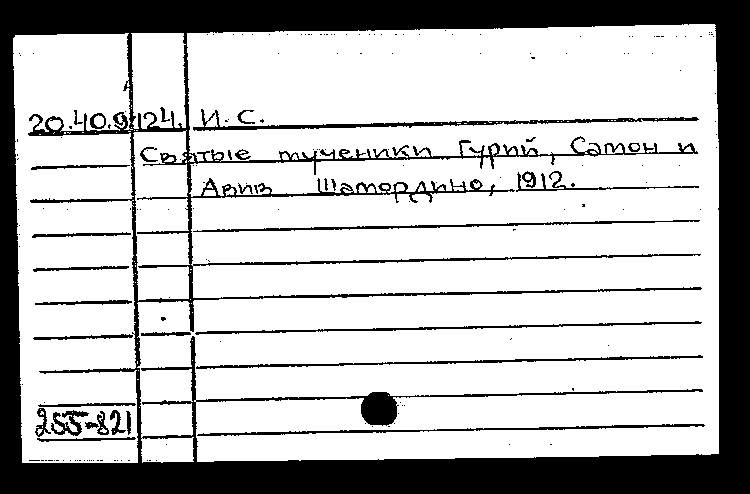 20.40.9.124. И. С.
Святые мученики Гурий, Самон и
Авив Шамордино, 1912.
255-821